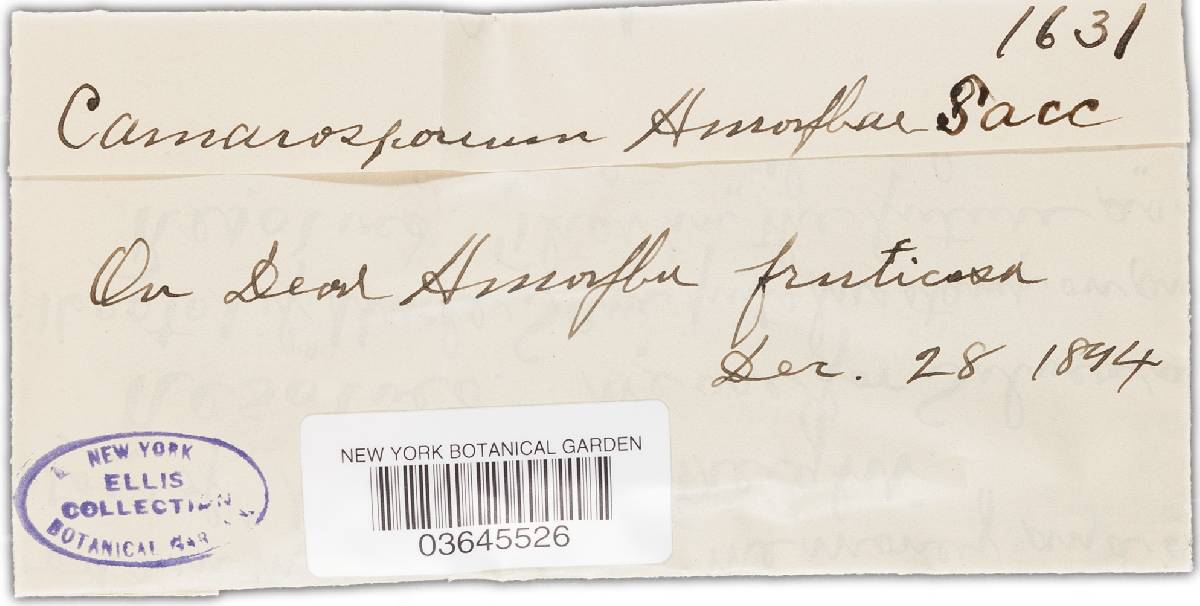 1631
Camarosporium Amorphae Sacc
On Dead Amorpha fruticosa
Dec. 28 1894
NEW YORK
ELLIS
COLLECTION
BOTANICAL GAR
NEW YORK BOTANICAL GARDEN
03645526